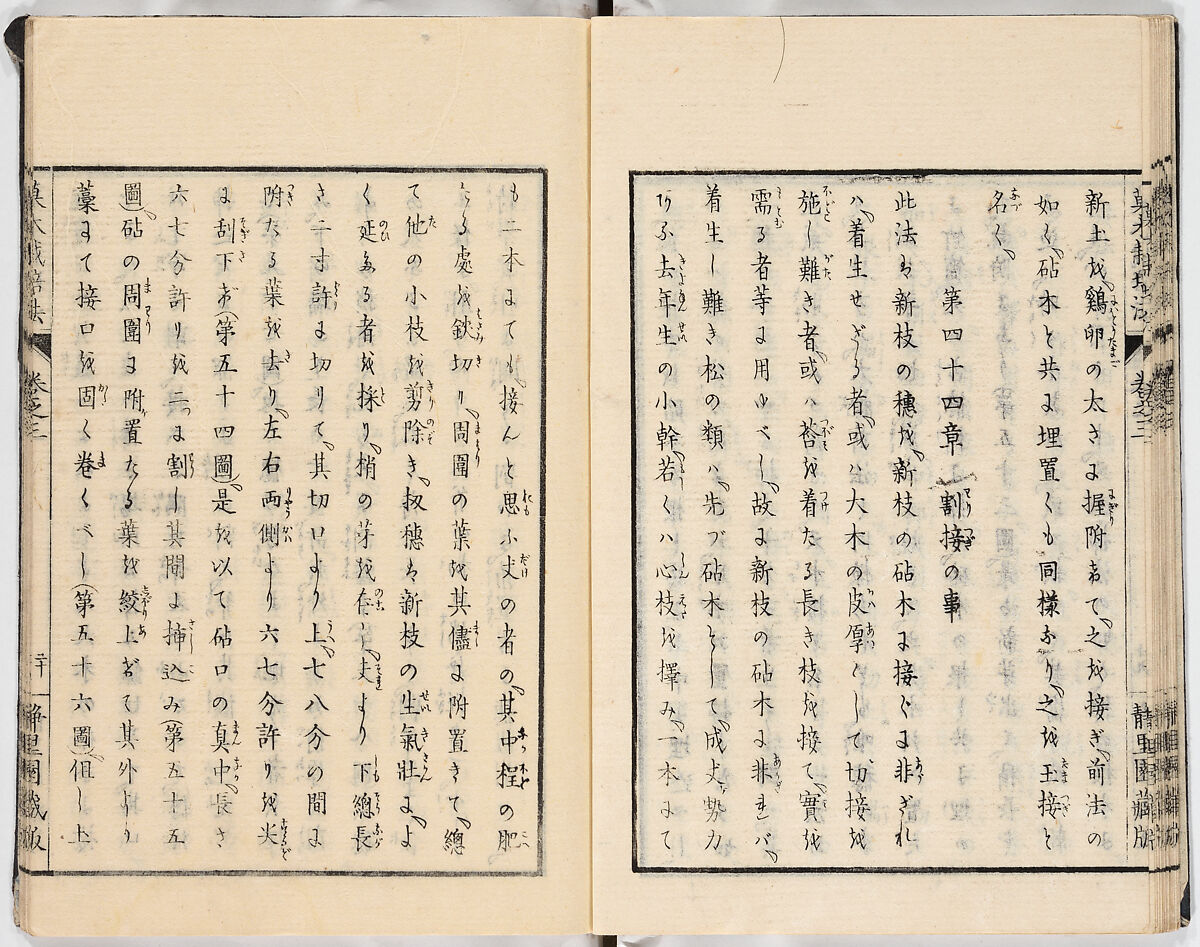 新土を鷄卵の太さに握附けて、之を接ぎ、前法の
如く、砧木と共に埋置くも同樣なり、之を玉接と
名く、
第四十四章 割接の事
此法は新枝の穗を、新枝の砧木に接ぐに非ざれ
ハ、着生せざる者、或ハ大木の皮厚くして、切接を
施し難き者、或ハ莟を着たる長き枝を接て、實を
需る者等に用ゆべし、故に新枝の砧木に非ればバ、
着生し難き松の類ハ、先づ砧木として、成丈勢力
ある去年生の小幹、若くハ心枝を擇み、一本にて
も二本にても、接んと思ふ丈の者の、其中程の肥
たる處を鋏切り、周圍の葉を其儘に附置きて、總
て他の小枝を剪除き、扨穗は新枝の生氣壯に、よ
く延たる者を採り、梢の芽を存し、夫より下總長
さ二寸許に切りて、其切口より上、七八分の間に
附たる葉を去り、左右両側より六七分許りを尖
に刮下ぎ(第五十四圖)、是を以て砧口の眞中、長さ
六七分許りを二に割し其間に挿込み(第五十五
圖)、砧の周圍に附置たる葉を絞上げて其外より
藁にて接口を固く卷くべし(第五十六圖)、但し上
菓木栽培法 卷之三 二十一 靜里園藏版